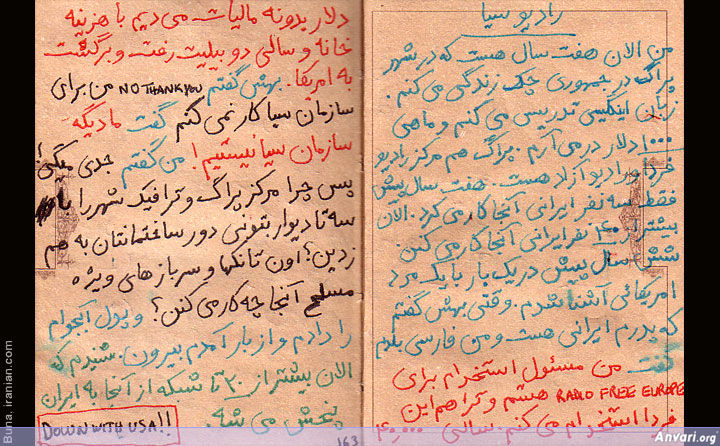 رادیو سیا
من الان هفت سال هست که در شهر
پراگ در جمهوری چک زندگی می کنم.
زبان اینگلیسی تدریس می کنم و ماهی
۱۰۰۰ دلار در می آرم. پراگ هم مرکز رادیو
فردا و رادیو آزاد هست. هفت سال پیش
فقط سه نفر ایرانی آنجا کار می کرد. الان
بیشتر از ۴۰ نفر ایرانی آنجا کار می کنن.
شش سال پیش در یک بار با یک مرد
امریکائی آشنا شدم. وقتی بهش گفتم
که پدرم ایرانی هست و من فارسی بلدم
گفت من مسئول استخدام برای
RADIO FREE EUROPE هستم و ترا هم این
فردا استخدام می کنم. سالی ۴۰,۰۰۰
دلار بدونه مالیات می دیم با هزینه
خانه و سالی دو بیلیت رفت و برگشت
به امریکا. بهش گفتم NO THANK YOU من برای
سازمان سیا کار نمی کنم گفت ما دیگه
سازمان سیا نیستیم! من گفتم جدی میگی؟!
پس چرا مرکز پراگ و ترافیک شهر را با
سه تا دیوار بتونی دور ساختمانتان به هم
زدین؟ اون تانکها و سربازهای ویژه
مسلح آنجا چه کار می کنن؟ و پول آبجوام
را دادم و از بار آمدم بیرون. شنیدم که
الان بیشتر از ۲۰ تا شبکه از آنجا به ایران
پخش می شه.
DOWN WITH USA!!
163
Buna. iranian.com
Anvari.org